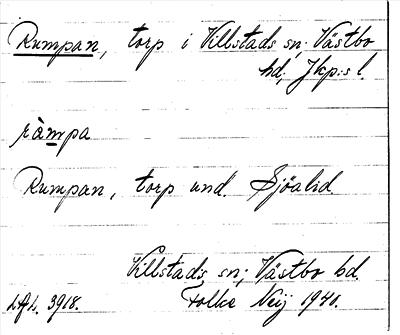 Rumpan, torp i Villstads sn; Västbo
hd; Jkp:s l.
ràmpa
Rumpan, torp und. Sjöalid
Villstads sn; Västbo hd.
Folke Neij 1940.
3918.